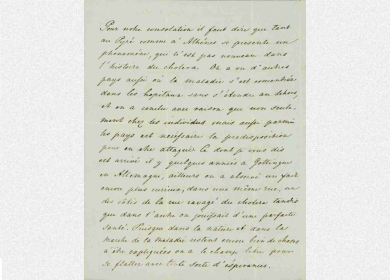 Pour notre consolation il faut dire que tant
au Pyré comme à Athènes se presente un
phenomène, qui n'est pas nouveau dans
l'histoire du cholera. On a vu d'autres
pays aussi où la maladie s'est concentrée
dans les hopitaux sans s'étendre au dehors
et on a conclu avec raison que non seule-
ment chez les individus mais aussi parmi
les pays est necessaire la predisposition
pour en être attaqué. Ce dont je vous dis
est arrivé il y quelques années à Gottingue
en Allemagne, ailleurs on a observé un fait
encor plus curieux, dans une même rue, un
des côtés de la rue ravagé du cholera tandis
que dans l'autre on jouissait d'une parfaite
santé. Puisque dans la nature et dans la
marche de la maladie restent encor bien de choses
à être expliquées on a le champ libre pour
se flatter avec toute sorte d'espérances.